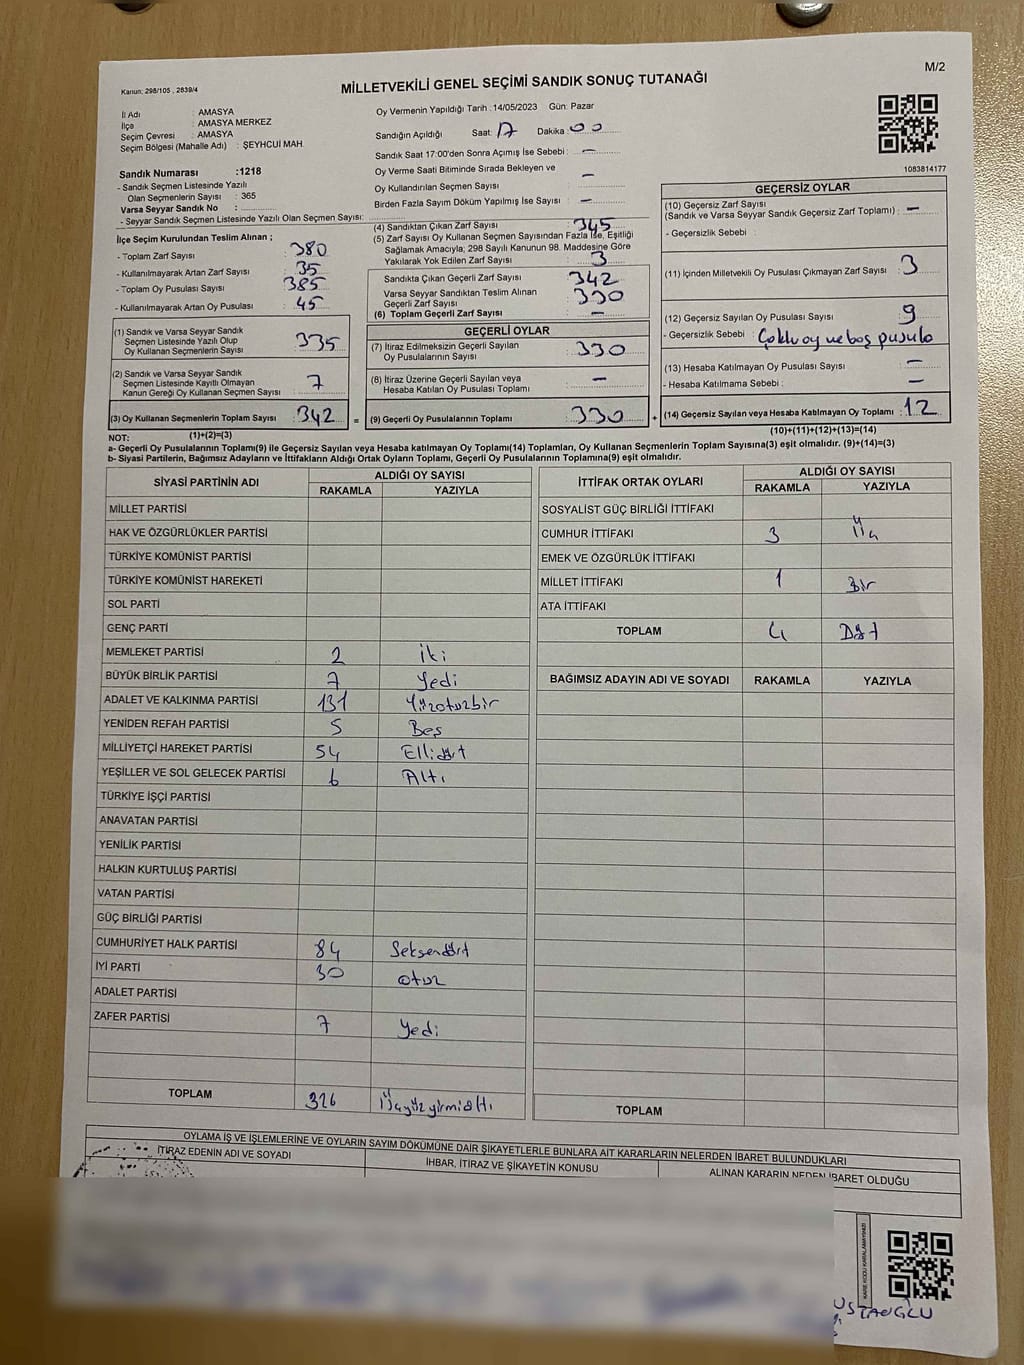 M/2
Kanun: 298/105 , 2839/4
MİLLETVEKİLİ GENEL SEÇİMİ SANDIK SONUÇ TUTANAĞI
İl Adı : AMASYA
İlçe : AMASYA MERKEZ
Seçim Çevresi : AMASYA
Seçim Bölgesi (Mahalle Adı) : ŞEYHCUİ MAH.
Sandık Numarası :1218
- Sandık Seçmen Listesinde Yazılı
Olan Seçmenlerin Sayısı : 365
Varsa Seyyar Sandık No :
- Seyyar Sandık Seçmen Listesinde Yazılı Olan Seçmen Sayısı:
Oy Vermenin Yapıldığı Tarih :14/05/2023 Gün: Pazar
Sandığın Açıldığı Saat: 17 Dakika: 00
Sandık Saat 17:00'den Sonra Açımış İse Sebebi : —
Oy Verme Saati Bitiminde Sırada Bekleyen ve
Oy Kullandırılan Seçmen Sayısı : —
Birden Fazla Sayım Döküm Yapılmış İse Sayısı : —
1083814177
İlçe Seçim Kurulundan Teslim Alınan ;
- Toplam Zarf Sayısı : 380
- Kullanılmayarak Artan Zarf Sayısı : 35
- Toplam Oy Pusulası Sayısı : 385
- Kullanılmayarak Artan Oy Pusulası : 45
(1) Sandık ve Varsa Seyyar Sandık
Seçmen Listesinde Yazılı Olup
Oy Kullanan Seçmenlerin Sayısı : 335
(2) Sandık ve Varsa Seyyar Sandık
Seçmen Listesinde Kayıtlı Olmayan
Kanun Gereği Oy Kullanan Seçmen Sayısı : 7
(3) Oy Kullanan Seçmenlerin Toplam Sayısı : 342 =
(1)+(2)=(3)
(4) Sandıktan Çıkan Zarf Sayısı : 345
(5) Zarf Sayısı Oy Kullanan Seçmen Sayısından Fazla İse, Eşitliği
Sağlamak Amacıyla; 298 Sayılı Kanunun 98. Maddesine Göre
Yakılarak Yok Edilen Zarf Sayısı : 3
Sandıkta Çıkan Geçerli Zarf Sayısı : 342
Varsa Seyyar Sandıktan Teslim Alınan
Geçerli Zarf Sayısı : 330
(6) Toplam Geçerli Zarf Sayısı : —
GEÇERLİ OYLAR
(7) İtiraz Edilmeksizin Geçerli Sayılan
Oy Pusulalarının Sayısı : 330
(8) İtiraz Üzerine Geçerli Sayılan veya
Hesaba Katılan Oy Pusulası Toplamı : —
(9) Geçerli Oy Pusulalarının Toplamı : 330 +
GEÇERSİZ OYLAR
(10) Geçersiz Zarf Sayısı
(Sandık ve Varsa Seyyar Sandık Geçersiz Zarf Toplamı) : —
- Geçersizlik Sebebi :
(11) İçinden Milletvekili Oy Pusulası Çıkmayan Zarf Sayısı : 3
(12) Geçersiz Sayılan Oy Pusulası Sayısı : 9
- Geçersizlik Sebebi : Çoklu oy ve boş pusula
(13) Hesaba Katılmayan Oy Pusulası Sayısı : —
- Hesaba Katılmama Sebebi : —
(14) Geçersiz Sayılan veya Hesaba Katılmayan Oy Toplamı : 12
(10)+(11)+(12)+(13)=(14)
NOT:
a- Geçerli Oy Pusulalarının Toplamı(9) ile Geçersiz Sayılan veya Hesaba katılmayan Oy Toplamı(14) Toplamları, Oy Kullanan Seçmenlerin Toplam Sayısına(3) eşit olmalıdır. (9)+(14)=(3)
b- Siyasi Partilerin, Bağımsız Adayların ve İttifakların Aldığı Ortak Oyların Toplamı, Geçerli Oy Pusulalarının Toplamına(9) eşit olmalıdır.
SİYASİ PARTİNİN ADI ALDIĞI OY SAYISI
RAKAMLA YAZIYLA
MİLLET PARTİSİ
HAK VE ÖZGÜRLÜKLER PARTİSİ
TÜRKİYE KOMÜNİST PARTİSİ
TÜRKİYE KOMÜNİST HAREKETİ
SOL PARTİ
GENÇ PARTİ
MEMLEKET PARTİSİ 2 İki
BÜYÜK BİRLİK PARTİSİ 7 Yedi
ADALET VE KALKINMA PARTİSİ 131 Yüzotuzbir
YENİDEN REFAH PARTİSİ 5 Beş
MİLLİYETÇİ HAREKET PARTİSİ 54 Ellidört
YEŞİLLER VE SOL GELECEK PARTİSİ 6 Altı
TÜRKİYE İŞÇİ PARTİSİ
ANAVATAN PARTİSİ
YENİLİK PARTİSİ
HALKIN KURTULUŞ PARTİSİ
VATAN PARTİSİ
GÜÇ BİRLİĞİ PARTİSİ
CUMHURİYET HALK PARTİSİ 84 Seksendört
İYİ PARTİ 30 otuz
ADALET PARTİSİ
ZAFER PARTİSİ 7 Yedi
TOPLAM 326 Üçyüzyirmialtı
İTTİFAK ORTAK OYLARI ALDIĞI OY SAYISI
RAKAMLA YAZIYLA
SOSYALİST GÜÇ BİRLİĞİ İTTİFAKI
CUMHUR İTTİFAKI 3 Üç
EMEK VE ÖZGÜRLÜK İTTİFAKI
MİLLET İTTİFAKI 1 Bir
ATA İTTİFAKI
TOPLAM 4 Dört
BAĞIMSIZ ADAYIN ADI VE SOYADI RAKAMLA YAZIYLA
TOPLAM
OYLAMA İŞ VE İŞLEMLERİNE VE OYLARIN SAYIM DÖKÜMÜNE DAİR ŞİKAYETLERLE BUNLARA AİT KARARLARIN NELERDEN İBARET BULUNDUKLARI
İTİRAZ EDENİN ADI VE SOYADI
İHBAR, İTİRAZ VE ŞİKAYETİN KONUSU
ALINAN KARARIN NEDEN İBARET OLDUĞU